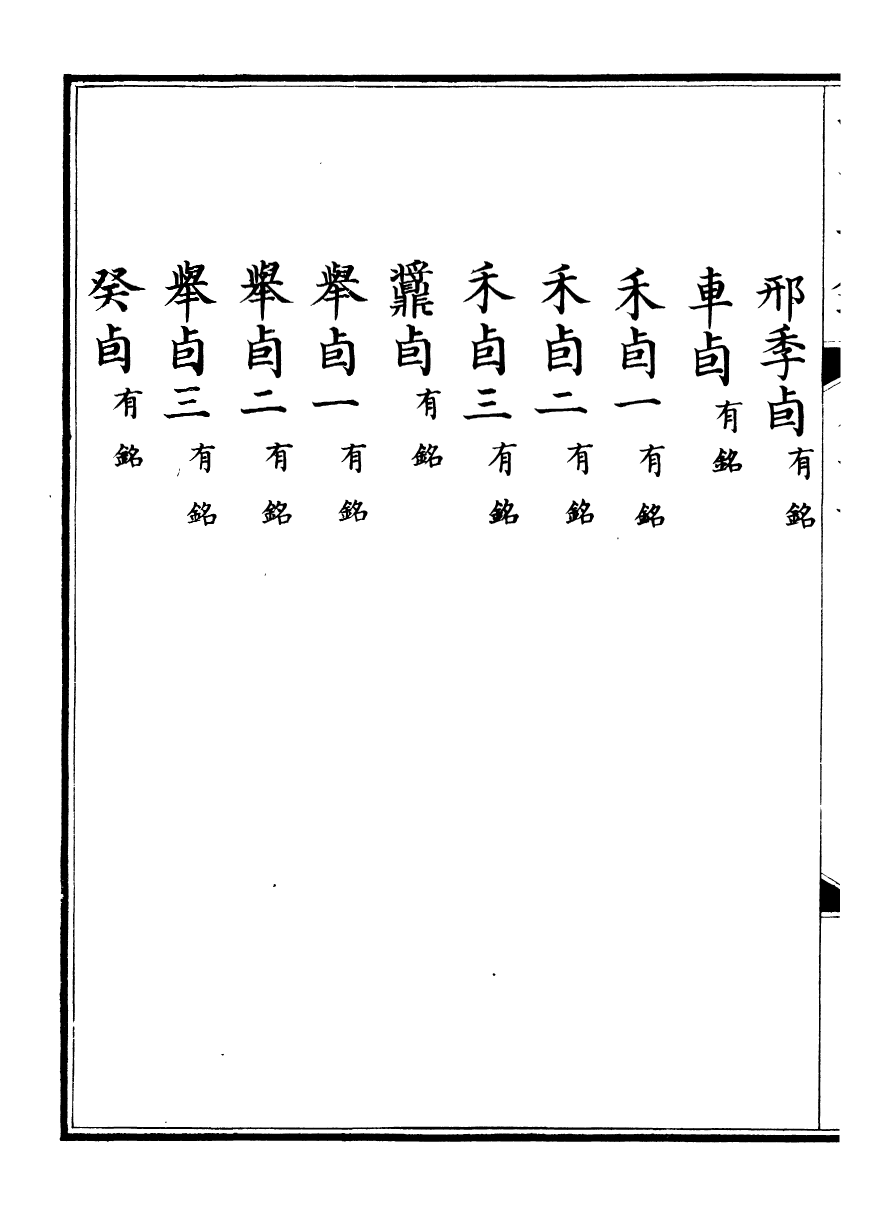 邢季卣有銘
車卣有銘
禾卣一有銘
禾卣二有銘
禾卣三有銘
䵼卣有銘
舉卣一有銘
舉卣二有銘
舉卣三有銘
癸卣有銘